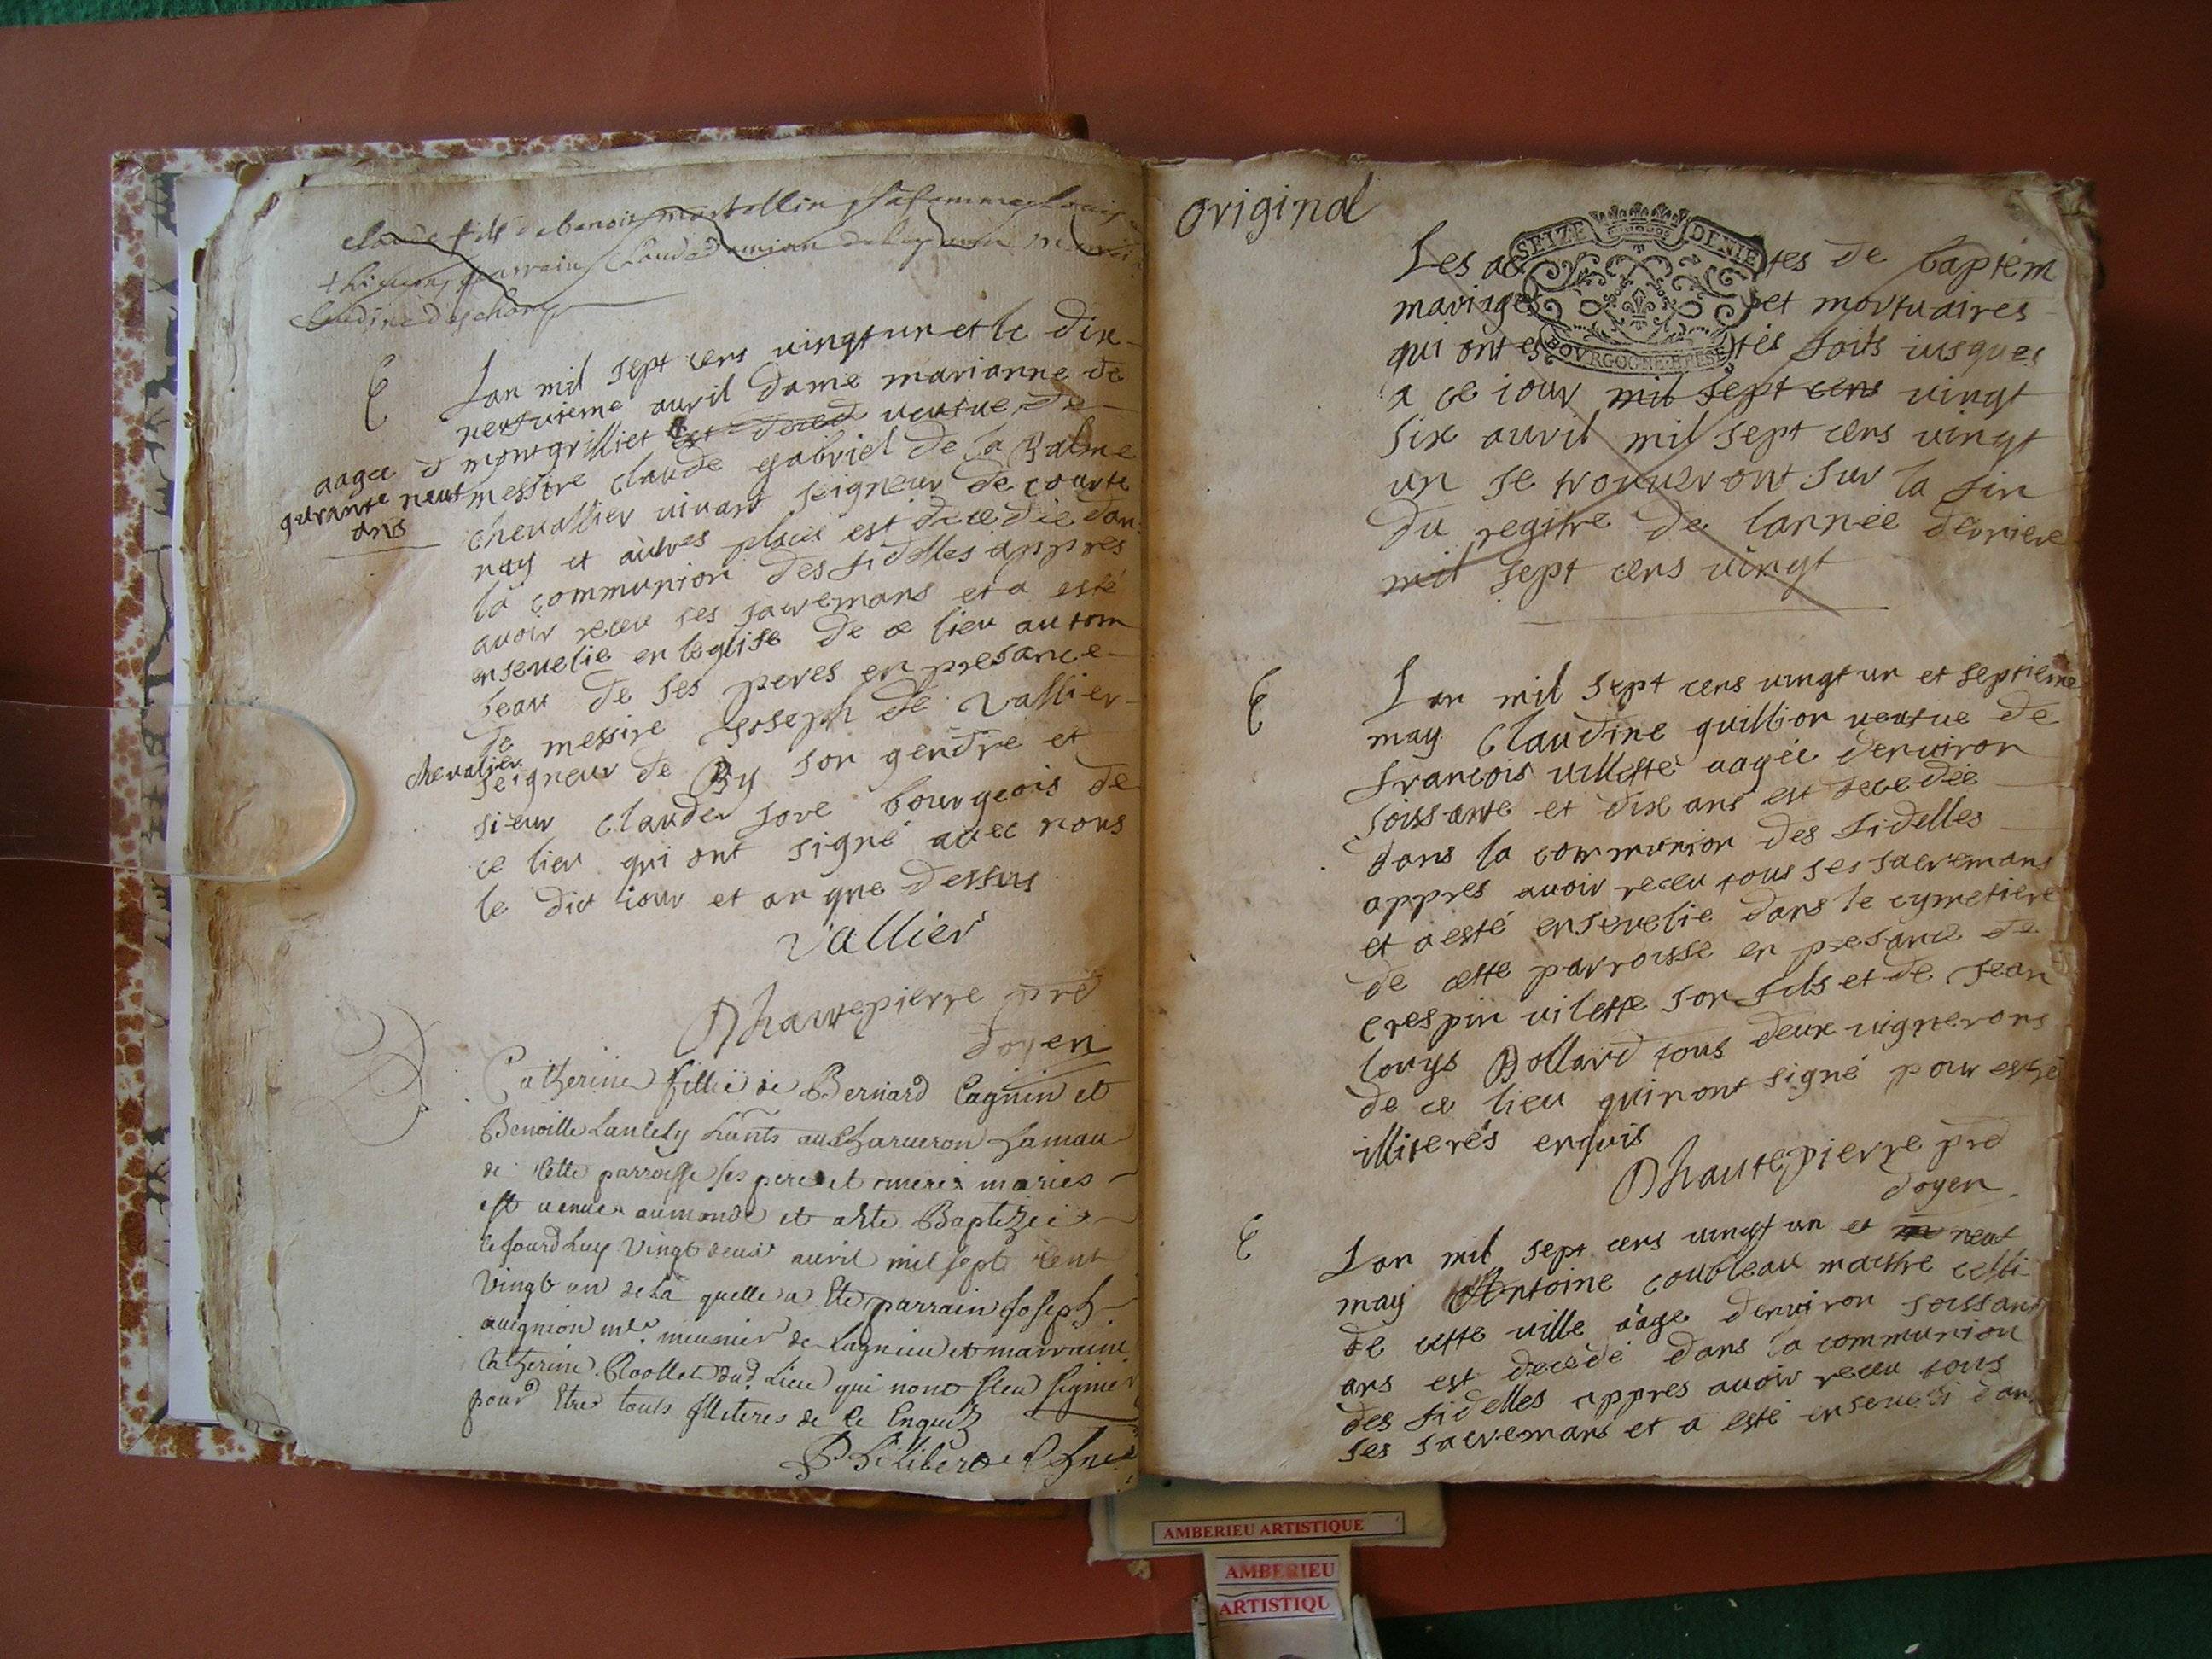 claude fils de benoit martellin sa femme
parrain claude damian
claudine deschamp
Lan mil sept cens vingt un et le dix
neufvieme avril dame marianne de
montgrilliet est deced veufue de
aagee d
quarante neuf
ans
messire claude gabriel de la Balme
chevallier vivant seigneur de courte
nay et autres places est decedée dan
la communion des fidelles appres
avoir receu ses sacremans et a esté
ensevelie en leglise de ce lieu au tom
beau de ses peres en presance
de messire Joseph de vallier
chevalier
seigneur de By son gendre et
sieur claude jore bourgeois de
ce lieu qui ont signé avec nous
le dict iour et an que dessus
Vallier
Dhautepierre pre
doyen
Catherine fillie de Bernard Cagnin et
Benoitte au Charveron hamau
de cette parroisse ses pere et mere maries
est venue au monde et a ete Baptizeé
cejourdhuy vingt deux avril mil sept cent
vingt un de la quelle a ete parrain Joseph
auignion me. meunier de Lagnieu et marraine
Catherine Roollet dud. Lieu qui nont sceu signer
pour etre touts illiteres de ce enquis
Philibert
original
SEIZE DENIE
BOVRGOGNE BRESE
Les actes de baptem
mariages et mortuaires
qui ont estés faits iusques
a ce iour mil sept cens vingt
six avril mil sept cens vingt
un se trouveront sur la fin
du regitre de lannée derniere
mil sept cens vingt
Lan mil sept cens vingt un et septieme
may Claudine quillion veufue de
francois villette aagée denviron
soissante et dix ans est decedée
dans la communion des fidelles
appres avoir receu tous ses sacremans
et a esté ensevelie dans le cymetiere
de cette parroisse en presance de
crespin vilette son fils et de Jean
louys Dollard tous deux vignerons
de ce lieu qui nont signé pour estre
illiterés enquis
Dhautepierre pre
doyen
Lan mil sept cens vingt un et neuf
may Antoine coubleau maistre celli
de cette ville aâge denviron soissant
ans est decedé dans la communion
des fidelles appres avoir receu tous
ses sacremans et a esté enseveli dan
AMBERIEU ARTISTIQUE
AMBERIEU
ARTISTIQU